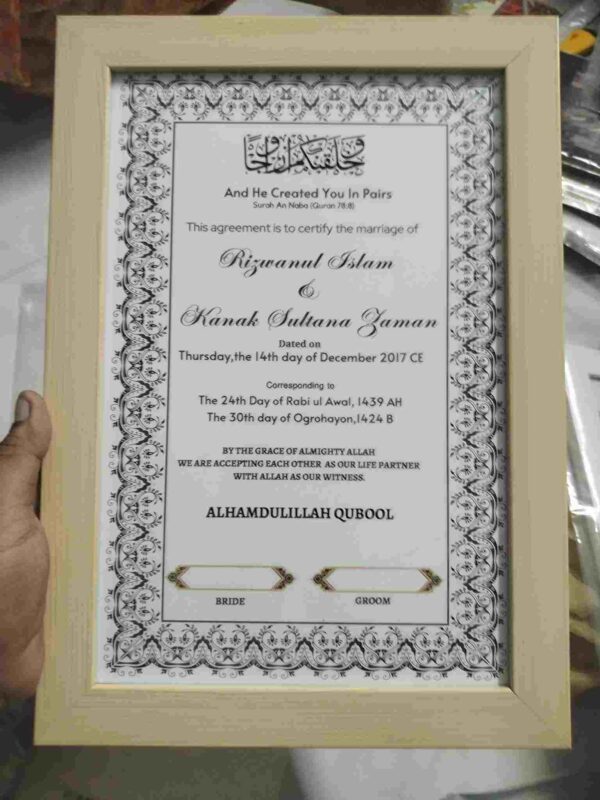 وَخَلَقْنَٰكُمْ أَزْوَٰجًا
And He Created You In Pairs
Surah An Naba (Quran 78:8)
This agreement is to certify the marriage of
Rizwanul Islam
&
Kanak Sultana Zaman
Dated on
Thursday,the 14th day of December 2017 CE
Corresponding to
The 24th Day of Rabi ul Awal, 1439 AH
The 30th day of Ogrohayon,1424 B
BY THE GRACE OF ALMIGHTY ALLAH
WE ARE ACCEPTING EACH OTHER AS OUR LIFE PARTNER
WITH ALLAH AS OUR WITNESS.
ALHAMDULILLAH QUBOOL
BRIDE GROOM